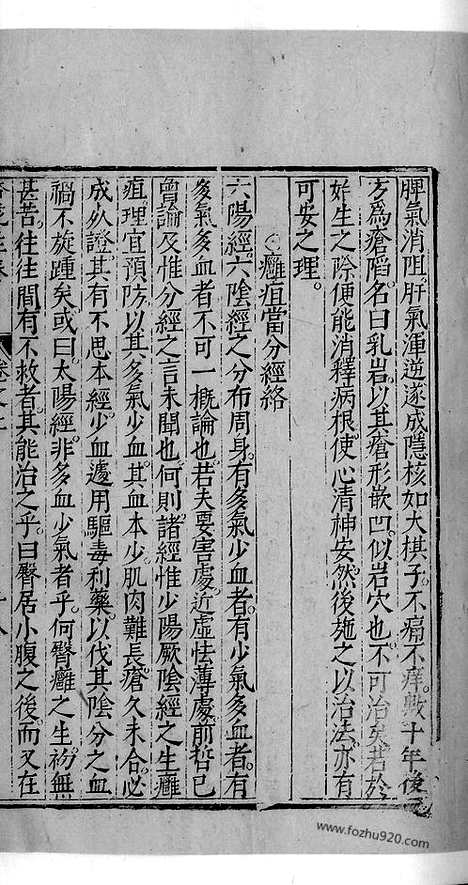 脾氣消阻肝氣渾逆遂成隱核如大棋子不痛不痒數十年後
方為瘡陷名曰乳岩以其瘡形嵌凹似岩穴也不可治矣若於
始生之際便能消釋病根使心清神安然後施之以治法亦有
可安之理
○癰疽當分經絡
六陽經六陰經之分布周身有多氣少血者有少氣多血者有
多氣多血者不可一概論也若夫要害處近虛怯薄處前哲已
曾論及惟分經之言未聞也何則諸經惟少陽厥陰經之生癰
疽理宜預防以其多氣少血其血本少肌肉難長瘡久未合必
成死證其有不思本經少血遽用驅毒利藥以伐其陰分之血
禍不旋踵矣或曰太陽經非多血少氣者乎何臀癰之生初無
甚苦往往間有不救者其能治之乎曰臀居小腹之後而又在
www.fozhu920.com